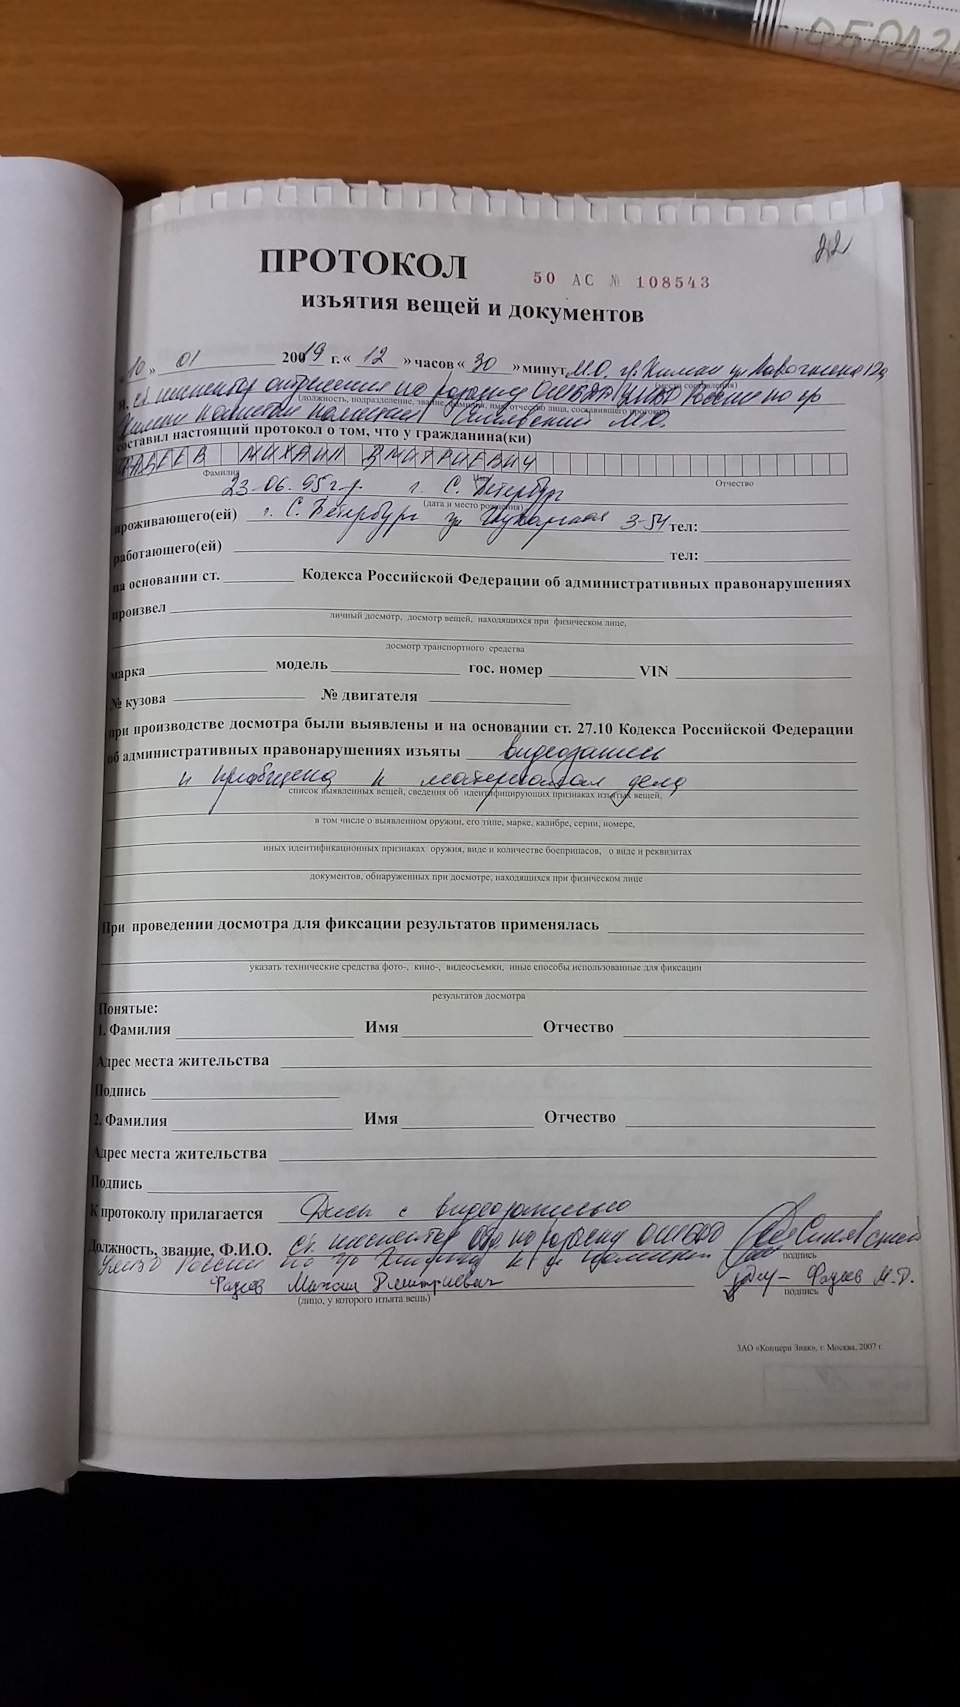 22
ПРОТОКОЛ
50 АС № 108543
изъятия вещей и документов
« 10 » 01 2009 19 г. « 12 » часов « 30 » минут М.О. гр. Химки ул
(место составления)
ст инспектор отделения по розыску ОГИБДД УМВД России по гр
(должность, подразделение, звание, фамилия, имя, отчество лица, составившего протокол)
Химки капитан полиции М.Ю.
составил настоящий протокол о том, что у гражданина(ки)
ФАДЕЕВ МИХАИЛ ДМИТРИЕВИЧ
Фамилия Имя Отчество
23-06.95 г.р. г. С. Петербург
(дата и место рождения)
проживающего(ей) г. С. Петербург ул 3-54 тел:
работающего(ей) тел:
на основании ст. Кодекса Российской Федерации об административных правонарушениях
произвел
личный досмотр, досмотр вещей, находящихся при физическом лице,
досмотр транспортного средства
марка модель гос. номер VIN
№ кузова № двигателя
при производстве досмотра были выявлены и на основании ст. 27.10 Кодекса Российской Федерации
об административных правонарушениях изъяты видеозапись
и приобщена к материалам дела
список выявленных вещей, сведения об идентифицирующих признаках изъятых вещей,
в том числе о выявленном оружии, его типе, марке, калибре, серии, номере,
иных идентификационных признаках оружия, виде и количестве боеприпасов, о виде и реквизитах
документов, обнаруженных при досмотре, находящихся при физическом лице
При проведении досмотра для фиксации результатов применялась
указать технические средства фото-, кино-, видеосъемки, иные способы использованные для фиксации
результатов досмотра
Понятые:
1. Фамилия Имя Отчество
Адрес места жительства
Подпись
2. Фамилия Имя Отчество
Адрес места жительства
Подпись
К протоколу прилагается Диск с видеозаписью
Должность, звание, Ф.И.О. ст. инспектор отд. по розыску ОГИБДД
подпись
УМВД России по гр Химки к-н полиции
Фадеев Михаил Дмитриевич Фадеев М.Д.
(лицо, у которого изъята вещь) подпись
ЗАО «Концерн Знак», г. Москва, 2007 г.